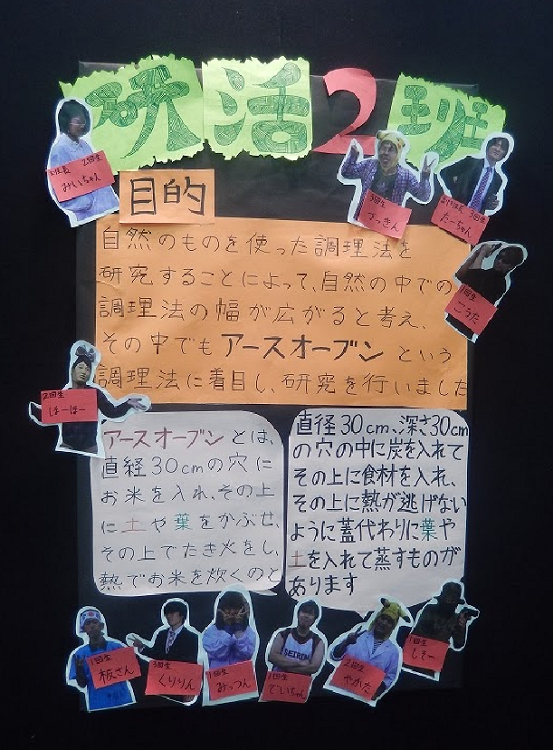 研活2班
目的
自然のものを使った調理法を
研究することによって、自然の中での
調理法の幅が広がると考え、
その中でもアースオーブンという
調理法に着目し、研究を行いました
アースオーブンとは、
直経30cmの穴に
お米を入れ、その上
に土や葉をかぶせ、
その上でたき火をし、
熱でお米を炊くのと
直径30cm、深さ30cm
の穴の中に炭を入れて
その上に食材を入れ、
その上に熱が逃げない
ように蓋代わりに葉や
土を入れて蒸すものが
あります
2回生
みいちゃん
3回生
3回生
たーちゃん
1回生
こうた
2回生
ほーほー
1回生
板さん
3回生
くりりん
1回生
みっつん
SEIRIN
2回生
やかした
1回生